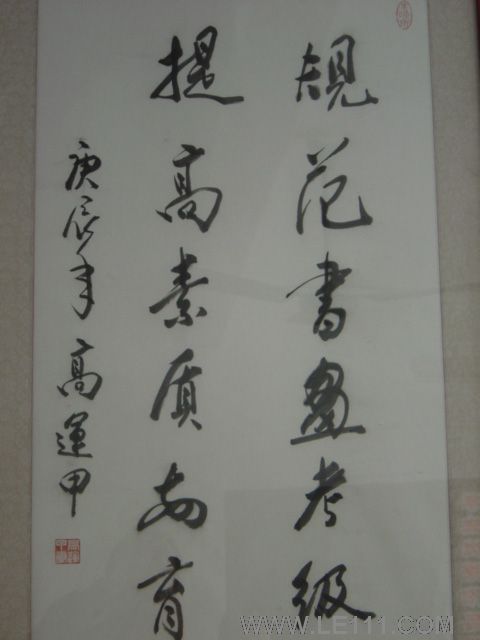 規范書畫考级
提高素质教育
庚辰年 高運甲
WWW.LE111.COM